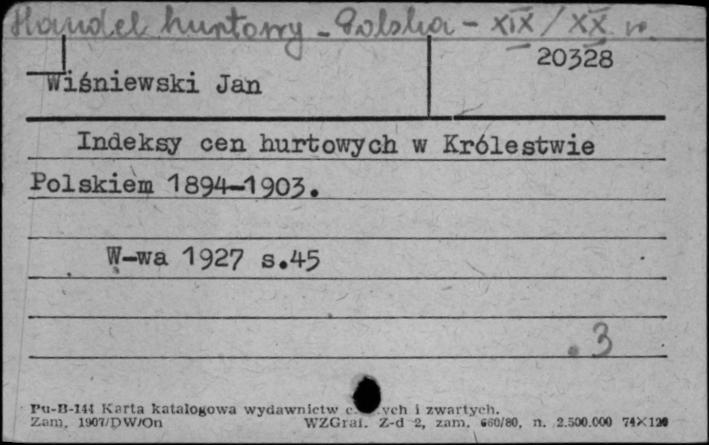 Handel hurtowy - Polska - XIX/XX w.
20328
Wiśniewski Jan
Indeksy cen hurtowych w Królestwie
Polskiem 1894-1903.
W-wa 1927 s.45
.3
Pu-B-144 Karta katalogowa wydawnictw i zwartych.
Zam. 1907/DW/On WZGraf. Z-d 2, zam. 660/80, n. 2.500.000 74×120